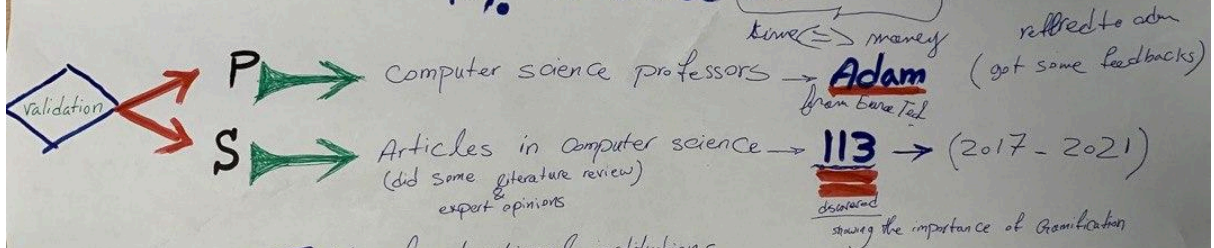 %.
time <=> money
reffred to adm
P computer science professors → Adam (got some feedbacks)
from
validation
S Articles in computer science → 113 → (2017 - 2021)
(did some literature review)
&
expert opinions
discovered
showing the importance of Gamification